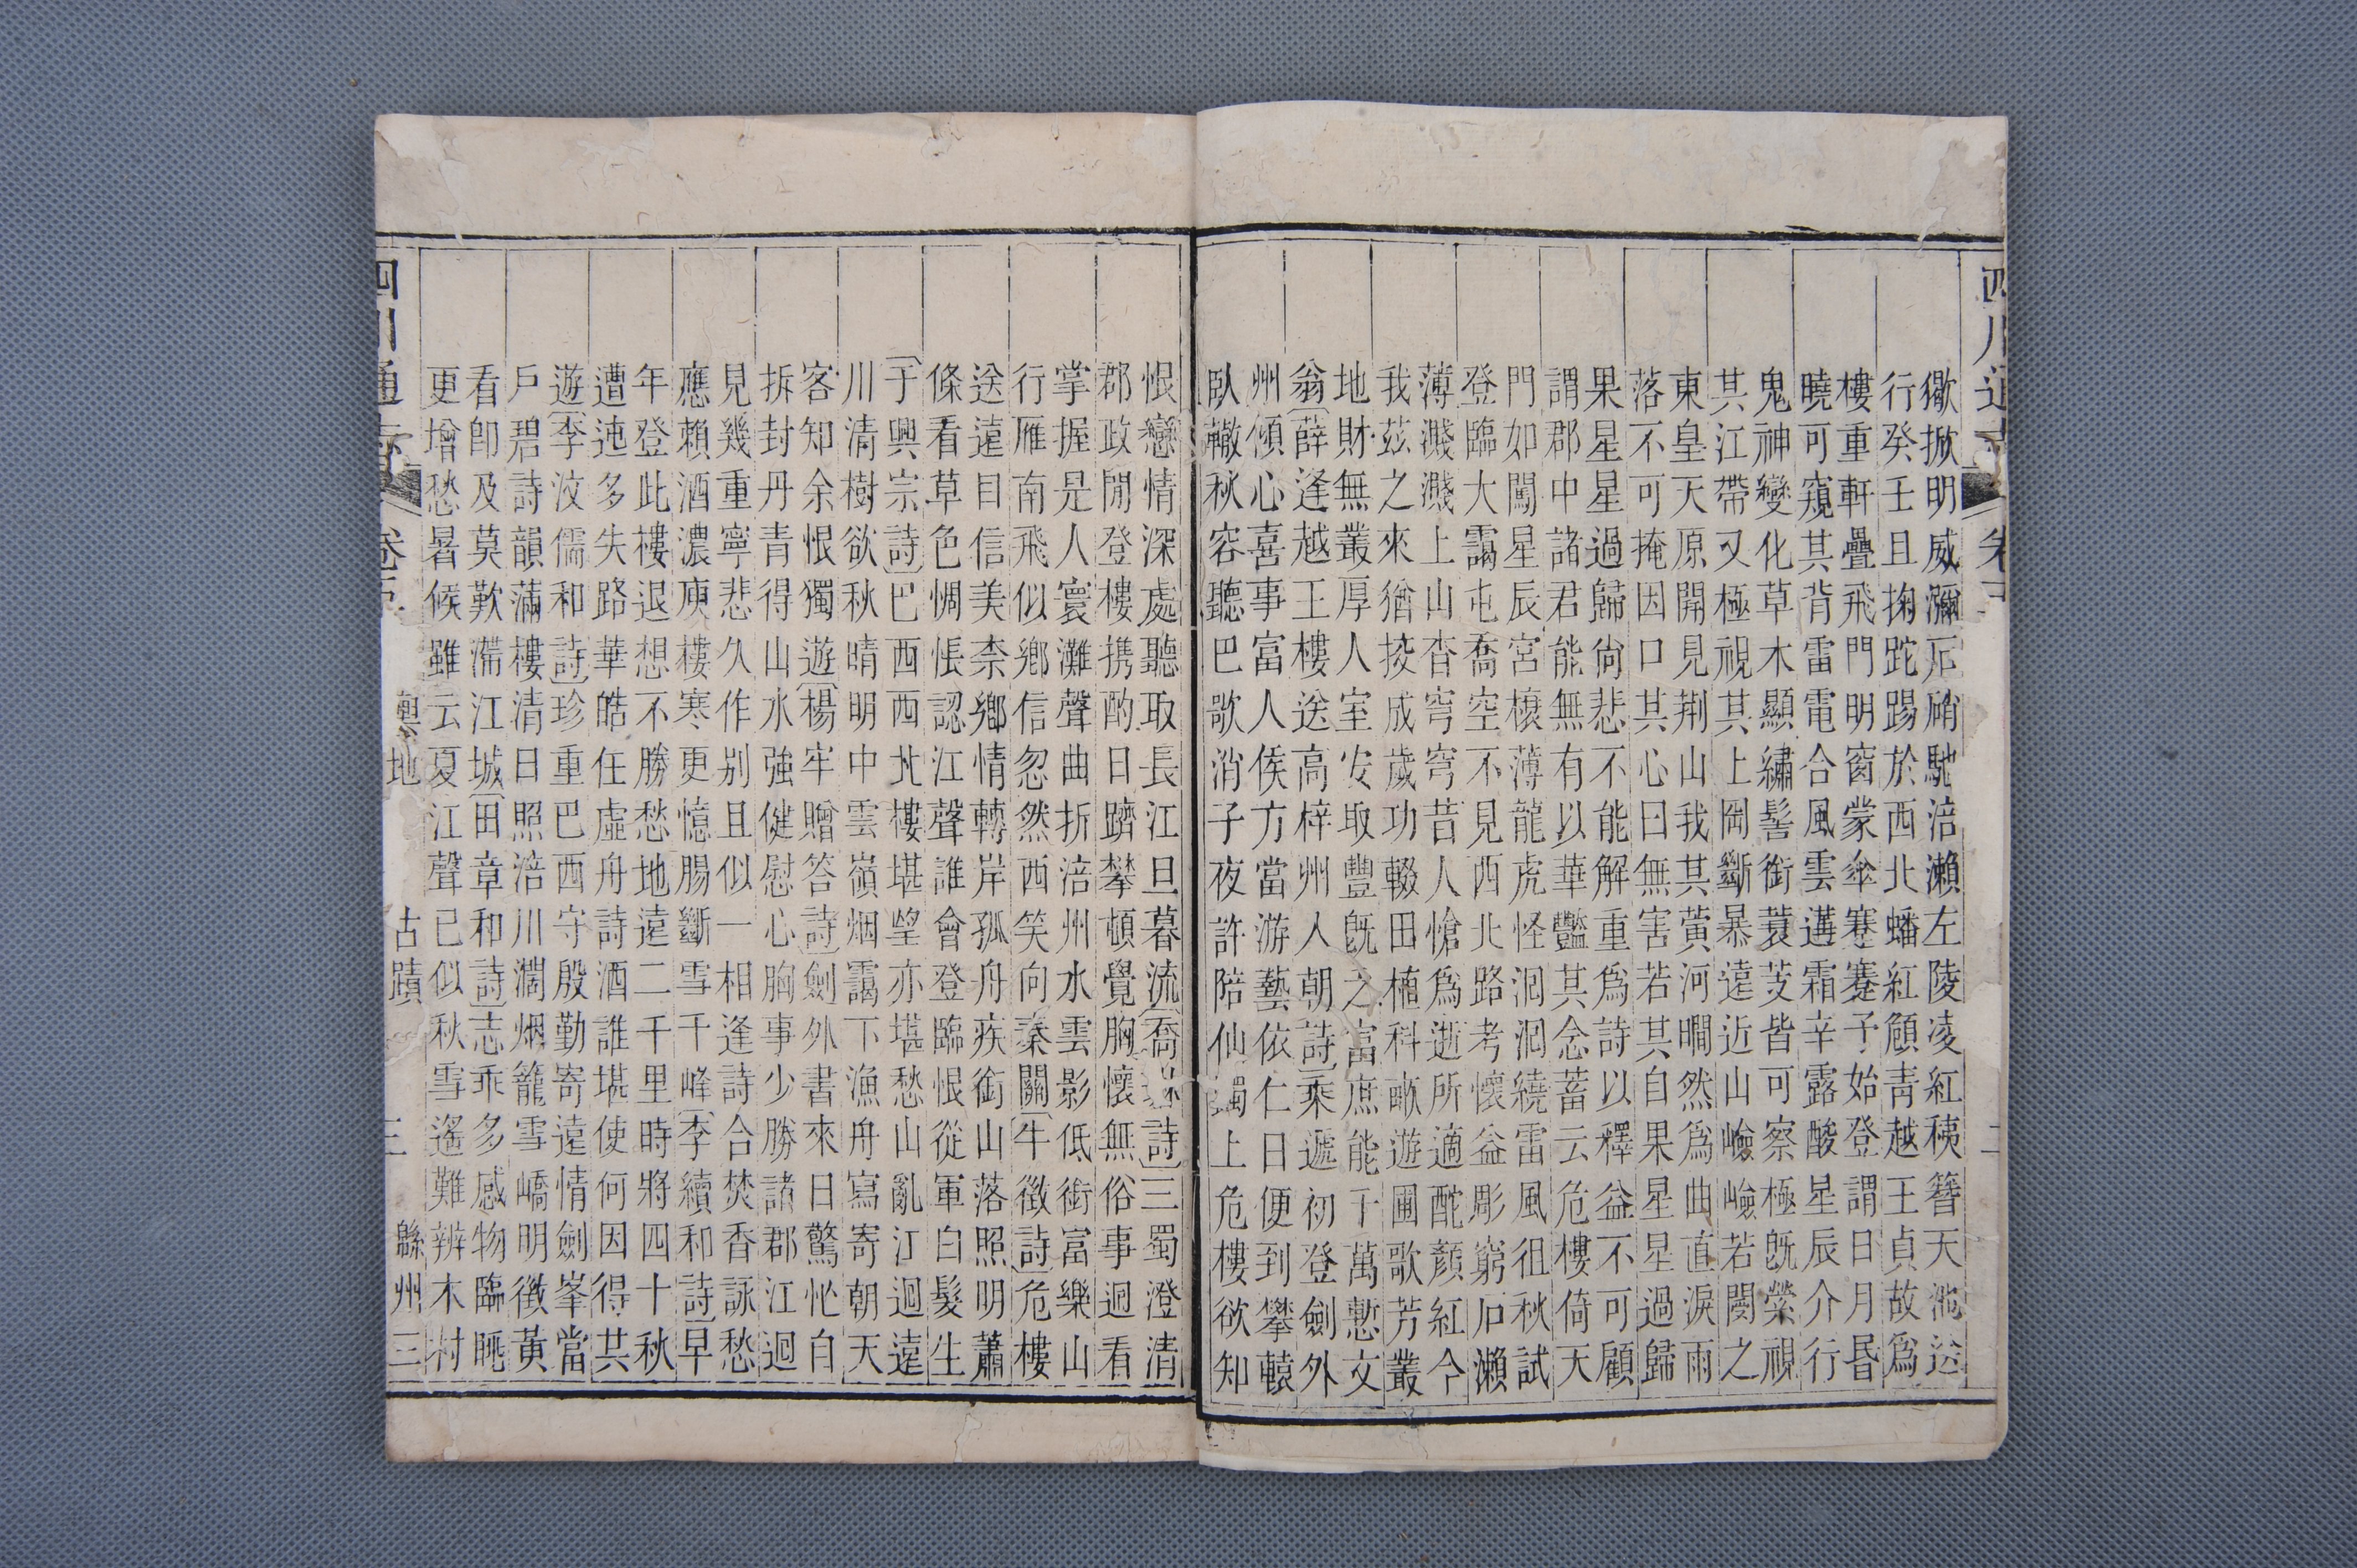 四川通志
歞掀明威瀰卮硝馳涪瀨左陵凌紅秧簪天池送
行癸壬且掬跎踢於西北蟠紅頠青越王貞故爲
樓重軒疊飛門明窗蒙傘蹇蹇予始登謂日月昬
曉可窺其背雷電合風雲遘霜辛露酸星辰介行
鬼神變化草木顯繡髻銜蓑芰皆可察極旣縈視
其江帶又極視其上岡斷暴遠近山嶮嶮若閿之
東皇天原開見荆山我其黃河瞯然爲曲直淚雨
落不可掩因口其心曰無害若其自果星星過歸
果星星過歸尙悲不能解重爲詩以釋益不可顧
謂郡中諸君能無有以華豔其念蓄云危樓倚天
門如闖星辰宮榱薄龍虎怪洄洄繞雷風徂秋試
登臨大靄屯喬空不見西北路考懷益彫窮石瀨
薄濺濺上山杳穹穹昔人愴爲逝所適酡顏紅今
我茲之來猶挍成歲功輟田植科畝遊圃歌芳叢
地財無叢厚人室安取豐旣之富庶能千萬慙文
翁〔薛逢越王樓送高梓州人朝詩〕乘遞初登劍外
州傾心喜事富人侯方當游藝依仁日便到攀轅
臥轍秋容聽巴歌消子夜許陪仙躅上危樓欲知
恨戀情深處聽取長江旦暮流〔喬琳詩〕三蜀澄清
郡政閒登樓携酌日躋攀頓覺胸懷無俗事迴看
掌握是人寰灘聲曲折涪州水雲影低銜富樂山
行雁南飛似鄉信忽然西笑向秦關〔牛徵詩〕危樓
送遠目信美柰鄉情轉岸孤舟疾銜山落照明蕭
條看草色惆悵認江聲誰會登臨恨從軍白髮生
〔于興宗詩〕巴西西北樓堪望亦堪愁山亂江迴遠
川清樹欲秋晴明中雲嶺烟靄下漁舟寫寄朝天
客知余恨獨遊〔楊牢贈答詩〕劍外書來日驚忙自
拆封丹青得山水強健慰心胸事少勝諸郡江迴
見幾重寧悲久作别且似一相逢詩合焚香詠愁
應賴酒濃庾樓寒更憶腸斷雪千峰〔李續和詩〕早
年登此樓退想不勝愁地遠二千里時將四十秋
遭迍多失路華皓任虛舟詩酒誰堪使何因得共
遊〔李汶儒和詩〕珍重巴西守殷勤寄遠情劍峯當
戶碧詩韻滿樓清日照涪川濶烟籠雪嶠明徵黃
看卽及莫歎滯江城〔田章和詩〕志乖多感物臨眺
更增愁暑候雖云夏江聲已似秋雪遙難辨木村
四川通志 卷五 輿地 古蹟 三 緜州三